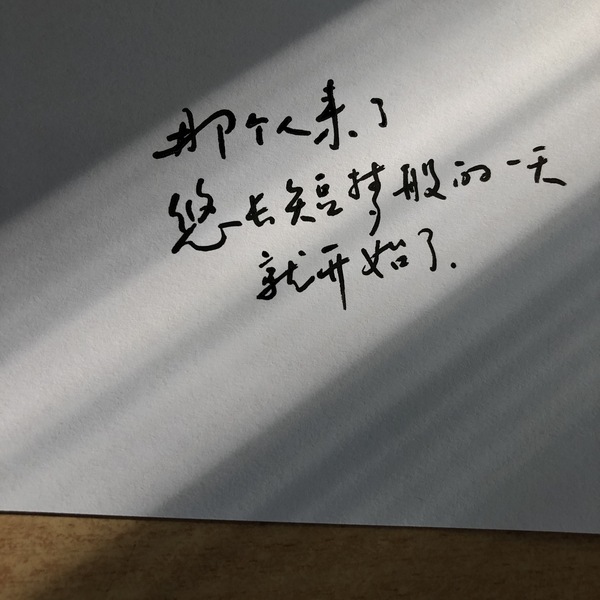 那个人来了
悠长短梦般的一天
就开始了.